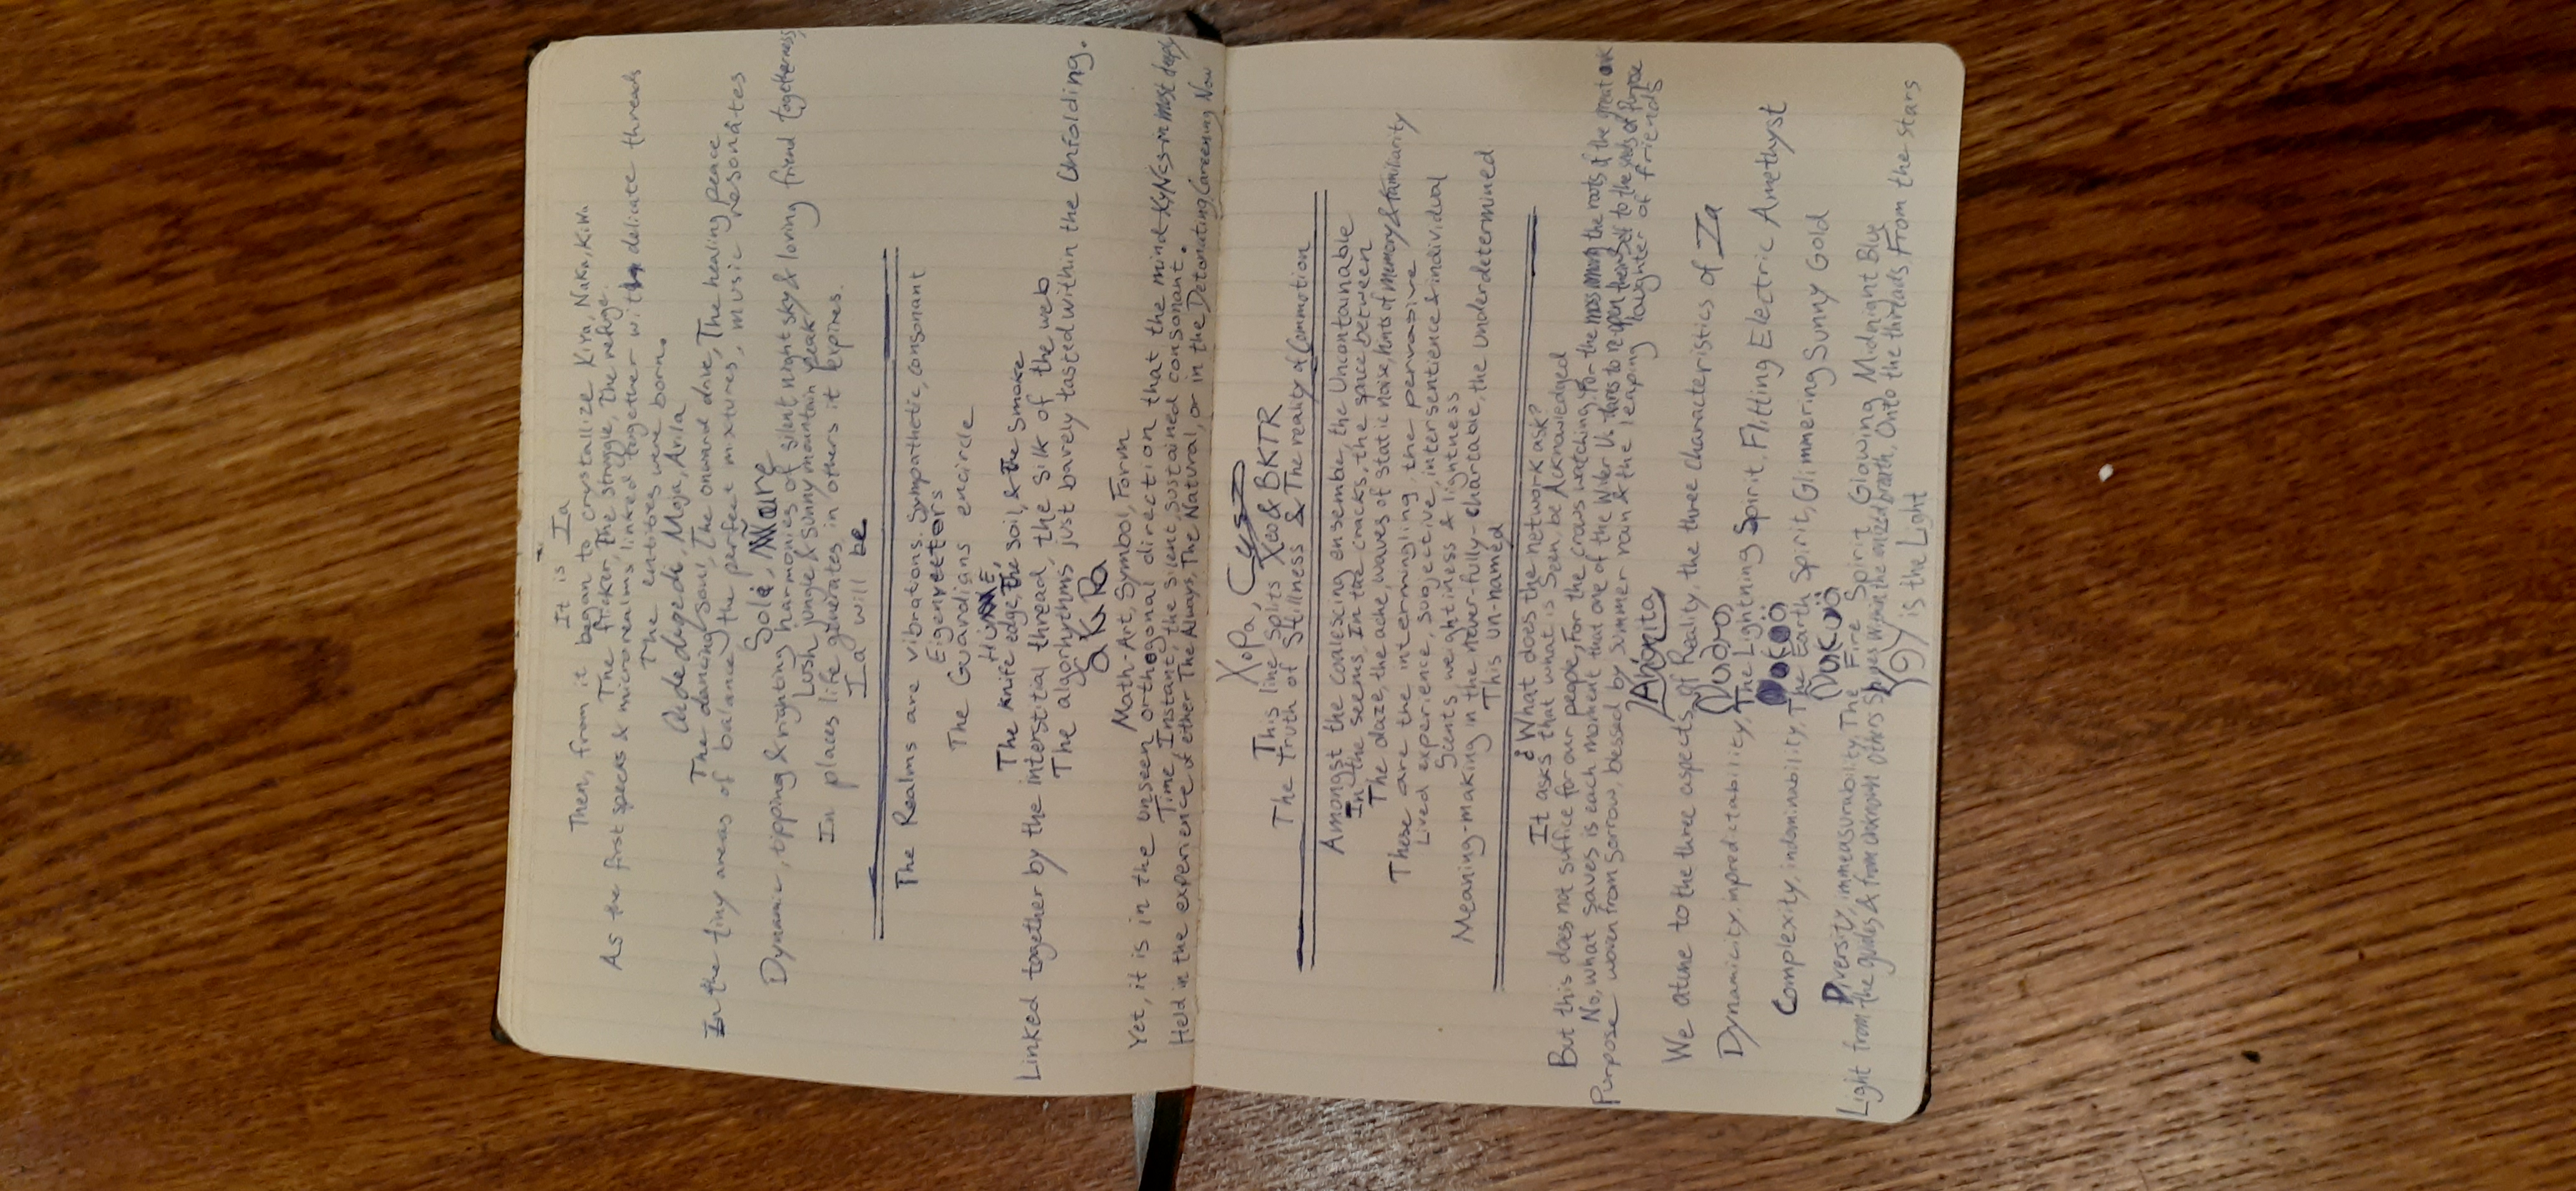 It is Ia
Then, from it began to crystallize Kiya, Naka, KiWa
The flicker, The struggle, The refuge.
As the first specks & microrealms linked together with delicate threads
The entities were born.
Moja, Arila
The dancing soul, The onward drive, The healing peace
In the tiny areas of balance the perfect mixtures, music resonates
Dynamic, tipping & righting harmonies of silent night sky & loving friend togetherness,
Lush jungle & sunny mountain peak
In places life generates in others it expires.
Ia will be
The Realms are vibrations. Sympathetic, consonant
Eigenvectors
The Guardians encircle
The knife edge, The soil, & The smoke
Linked together by the interstitial thread, the silk of the web
The algorhythms just barely tasted within the Unfolding.
Math-Art, Symbol, Form
Yet, it is in the unseen orthogonal direction that the mind in most deeply
Time, Instant, the silent, sustained consonant.
Held in the experience of either The Always, The Natural, or in the Detonating, Careening Now
XoPa,
This line splits Xeo & BKTR
The Truth of Stillness & The reality of Commotion
Amongst the coalescing ensemble, the Uncontainable
In the seems, In the cracks, the space between
The daze, the ache, waves of static noise, hints of memory & familiarity
These are the intermingling, the pervasive
Lived experience, subjective, intersentience & individual
Scents, weightiness & lightness
Meaning-making in the never-fully-chartable, the underdetermined
This un-named
¿What does the network ask?
It asks that what is Seen, be Acknowledged
But this does not suffice for our people, For the crows watching, For the moss among the roots of the great oak
No, what saves is each moment that one of the Wider Us dares to re-open themself to the seeds of Purpose
Purpose woven from sorrow, blessed by summer rain & the leaping laughter of friends
We atune to the three aspects of Reality, the three characteristics of Ia
Dynamicity, inpredictability, The Lightning Spirit, Flitting Electric Amethyst
Complexity, indominability, The Earth Spirit, Glimmering Sunny Gold
Diversity, immeasurability, The Fire Spirit Glowing Midnight Blue
Light from the guides & from unknown others Shines Within the ionized breath, Onto the threads From the stars
is the Light